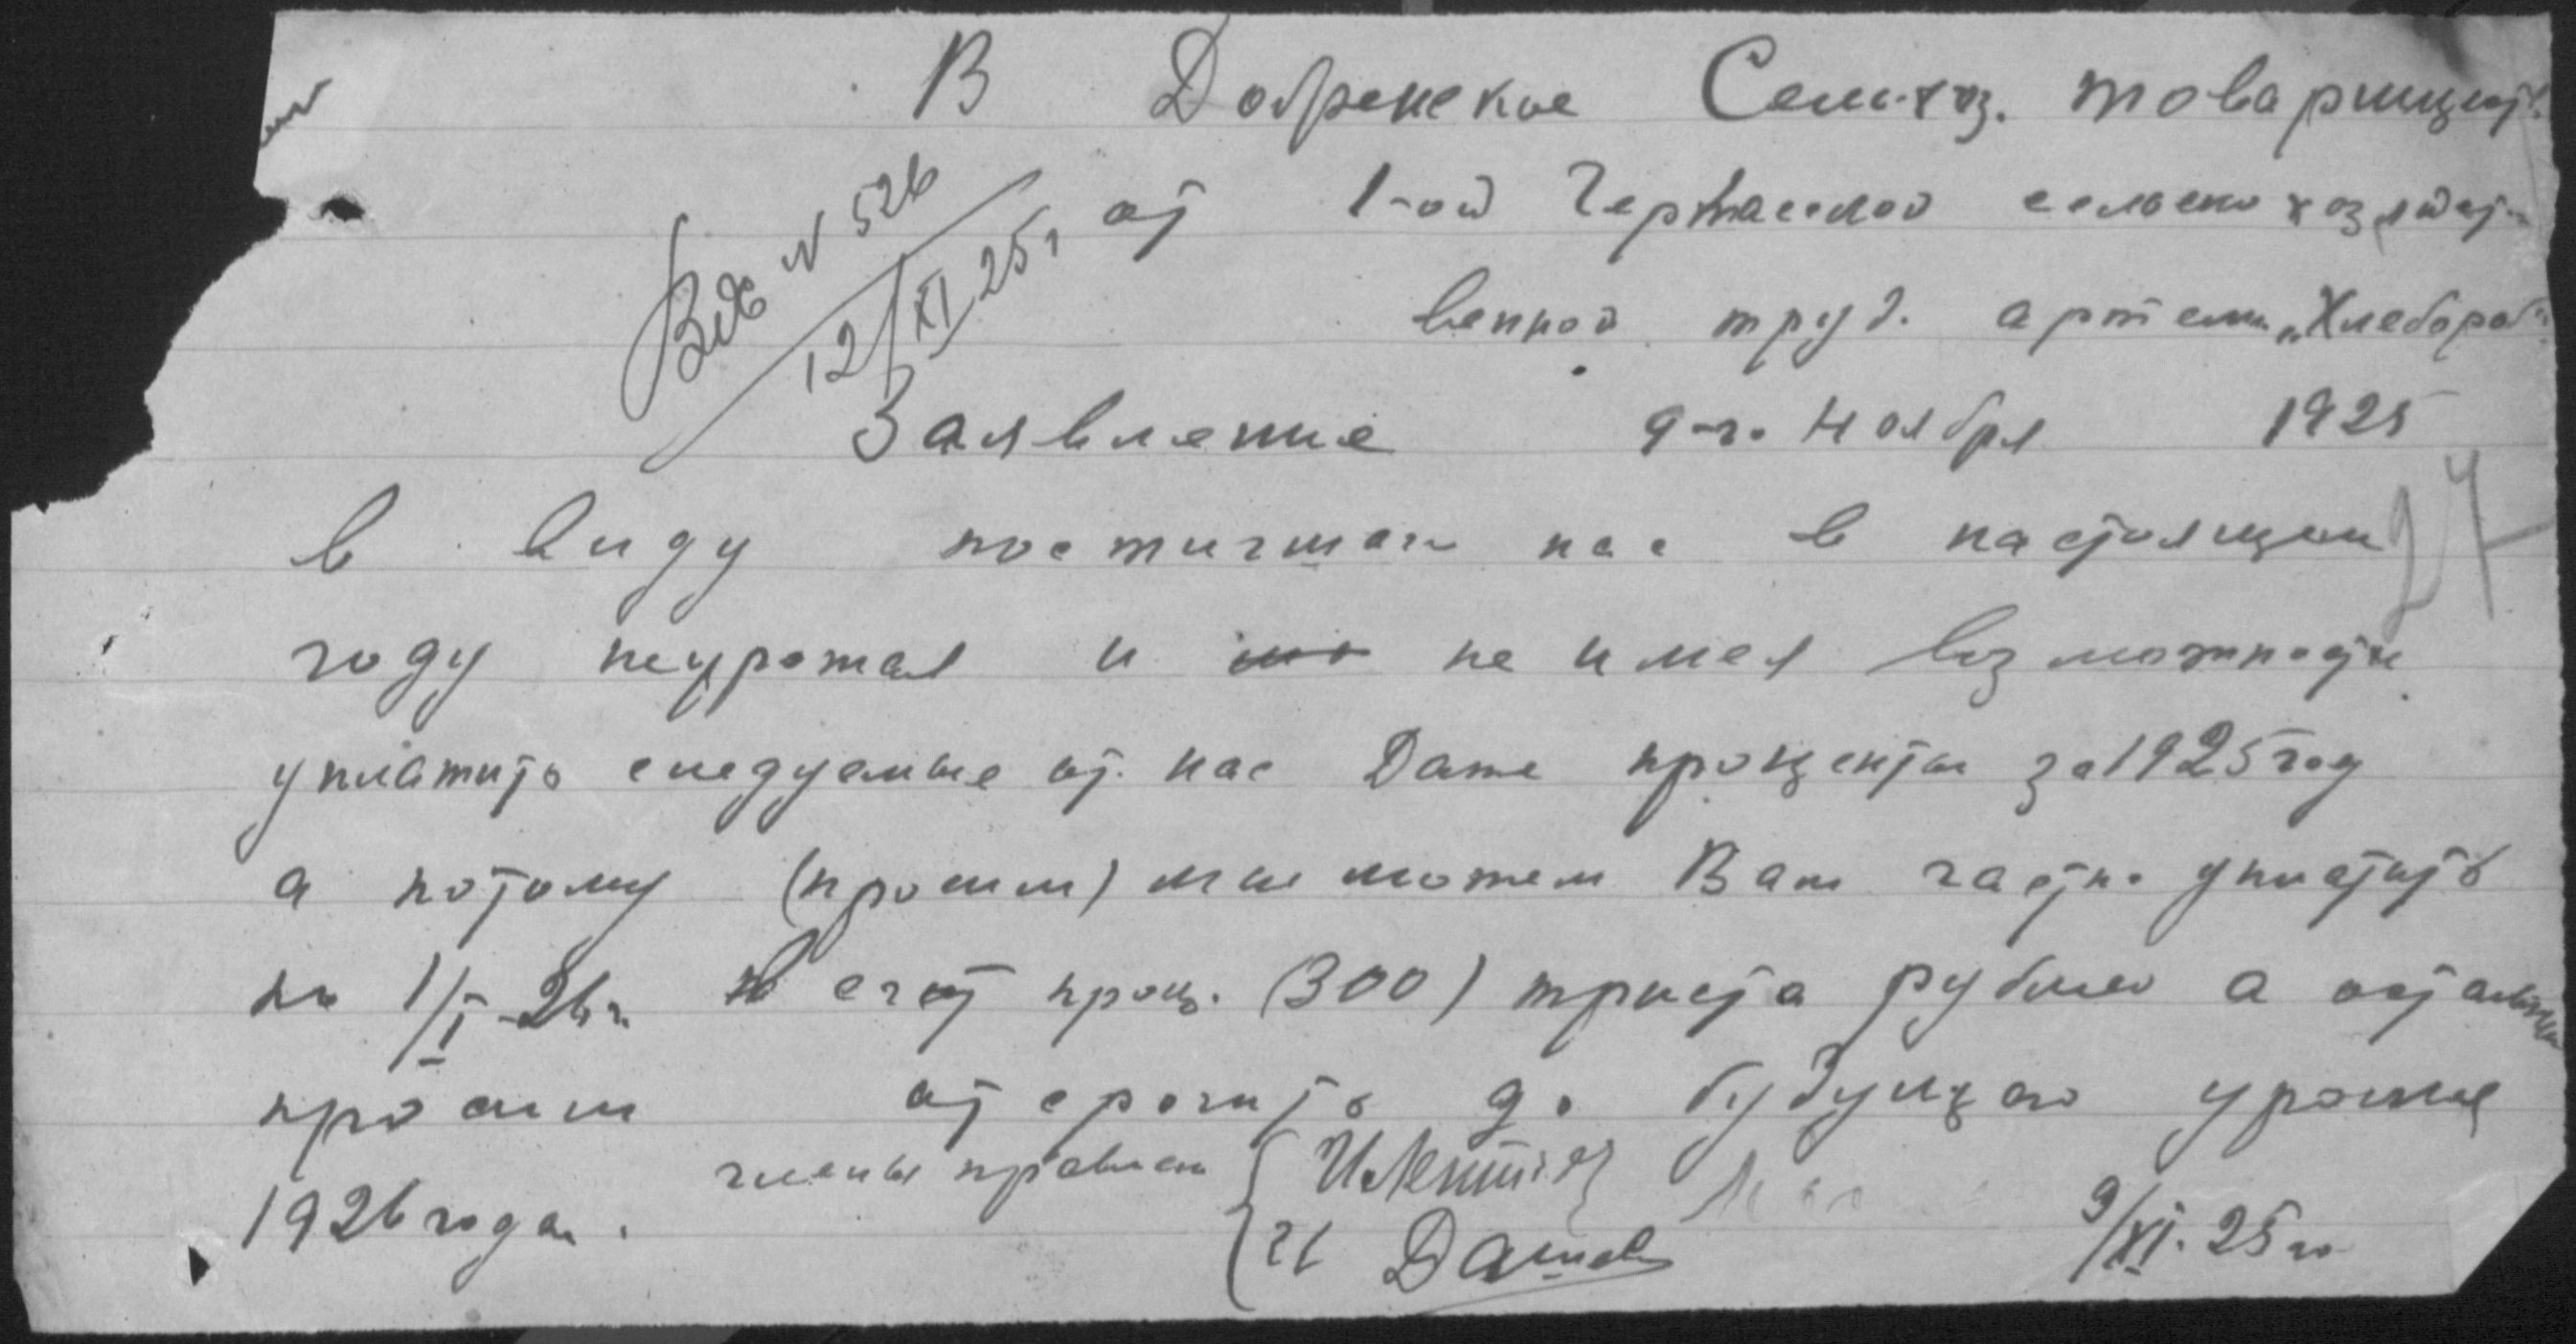 В Добренское Сель.хоз. товарищест.
Вх № 526
12/XI 25 г
от 1-ой Черкасской сельско хозяйст-
венной труд. артели „Хлебороб"
Заявление 9-го Ноября 1925
27
в виду постигшаго нас в настоящем
году неурожая и не имея возможности
уплатить следуемые от нас даже проценты за 1925 год
а потому (просим) мы можем Вам частью уплатить
на 1/I-26 г. в счет проц. (300) триста рублей а остальные
просим отсрочить до будущаго урожая
1926 года.
члены правлен
И
Дашев
9/XI. 25 го